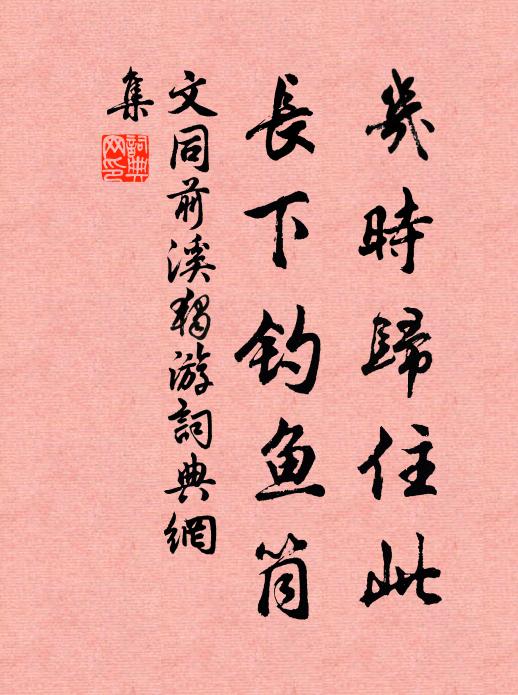 幾時歸住此
長下釣魚筒
文同前溪獨游詞典網
集
詞典網印